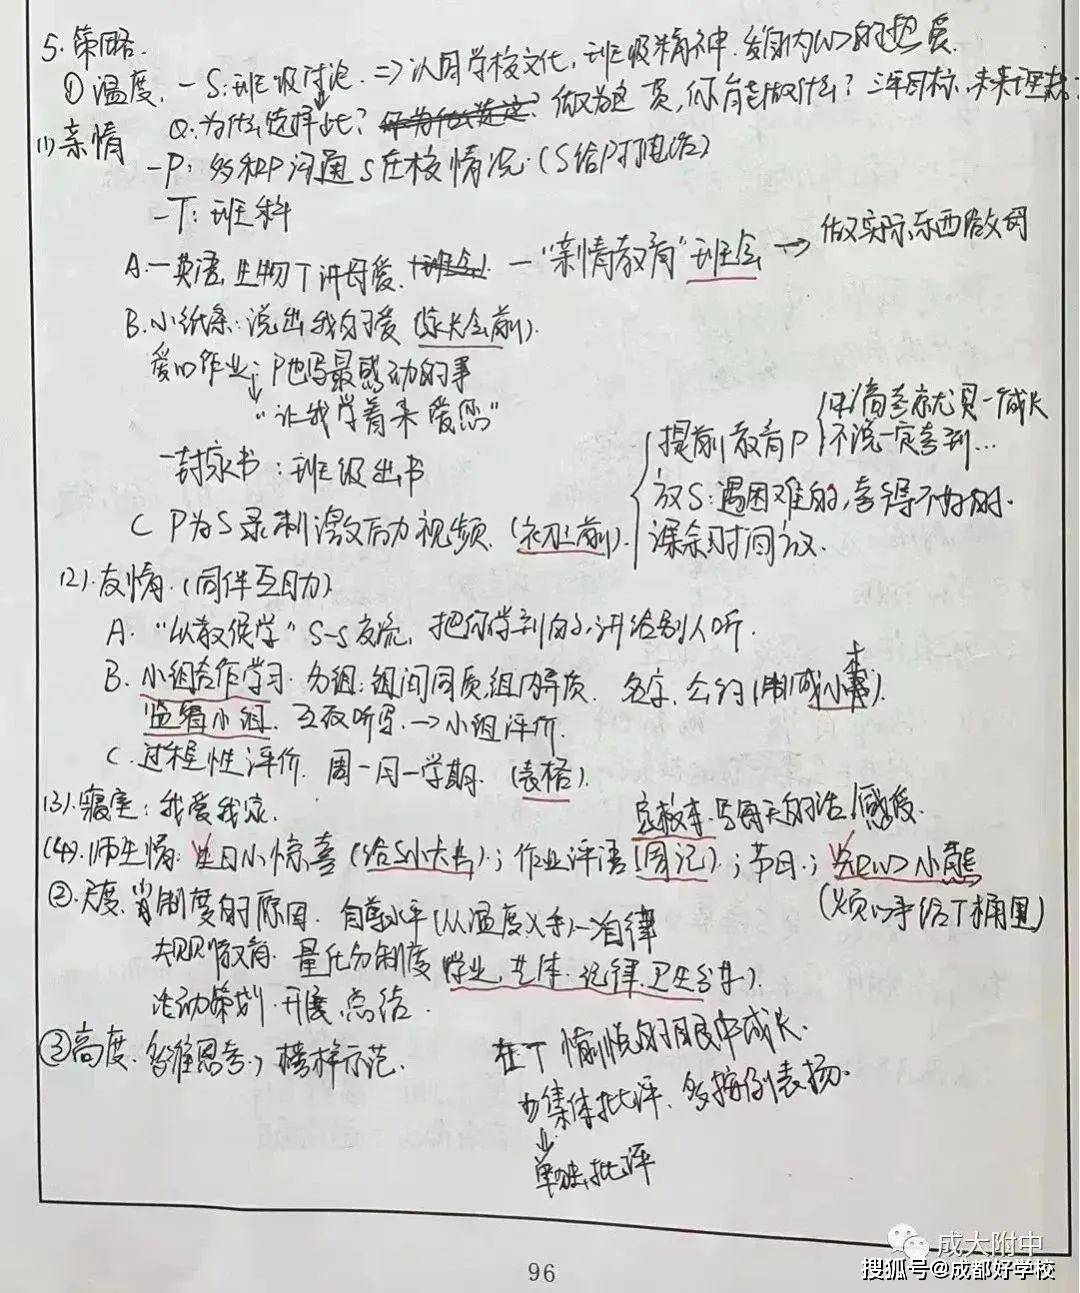 5. 策略.
①温度. - S: 班级讨论. => 认同学校文化, 班级精神. 发自内心的热爱.
Q: 为什么选择此? 做为这一员, 你能做什么? 三年目标, 未来理想
(1)亲情
- P: 多和P沟通S在校情况. (S给P打电话)
- T: 班科
A. 一英语, 生物T讲母爱. 一"亲情教育"班会 → 做实际东西给父母
B. 小纸条: 说出我的爱 (家长会前).
爱心作业: P也写最感动的事
↓
"让我学着来爱您"
一封家书: 班级出书
C P为S录制激励视频. (初三前).
提前教育P 不说一定考到...
放S: 遇困难的, 考得不好的.
课余时间放.
(2).友情. (同伴互助)
A. "以教促学" S-S交流, 把你学到的, 讲给别人听.
B. 小组合作学习. 分组: 组间同质, 组内异质. 名字. 公约 (制成小本).
监督小组. 互改听写. → 小组评价.
C. 过程性评价. 周一月一学期. (表格).
(3).寝室: 我爱我家.
定板本. 写每天的活/感受.
(4).师生情: 生日小惊喜 (给S小卡片); 作业评语 (周记); 节日; 小熊
(烦心事给T桶里)
②尺度. 制度的原因. 自尊水平 (从温度入手)—自律
大规则教育. 量化分制度 (学业, 艺体. 纪律. 卫生分开).
活动策划. 开展. 总结.
③高度. 多维思考, 榜样示范.
在T愉悦的眼中成长.
少集体批评. 多按例表扬.
↓
单独批评
成大附中
搜狐号@成都好学校
96